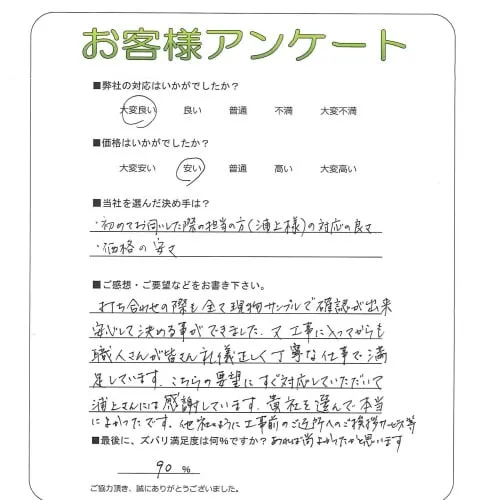 お客様アンケート
■弊社の対応はいかがでしたか?
大変良い 良い 普通 不満 大変不満
■価格はいかがでしたか?
大変安い 安い 普通 高い 大変高い
■当社を選んだ決め手は?
・初めてお伺いした際の担当の方(浦上様)の対応の良さ
・価格の安さ
■ご感想・ご要望などをお書き下さい。
打ち合わせの際も全て現物サンプルで確認が出来
安心して決める事ができました。又 工事に入ってからも
職人さんが皆さん礼儀正しく丁寧な仕事で満
足しています。こちらの要望にすぐ対応していただいて
浦上さんには感謝しています。貴社を選んで本当
によかったです。他社のように工事前のご近所へのご挨拶サービス等
あれば尚よかったかと思います
■最後に、ズバリ満足度は何%ですか?
90 %
ご協力頂き、誠にありがとうございました。